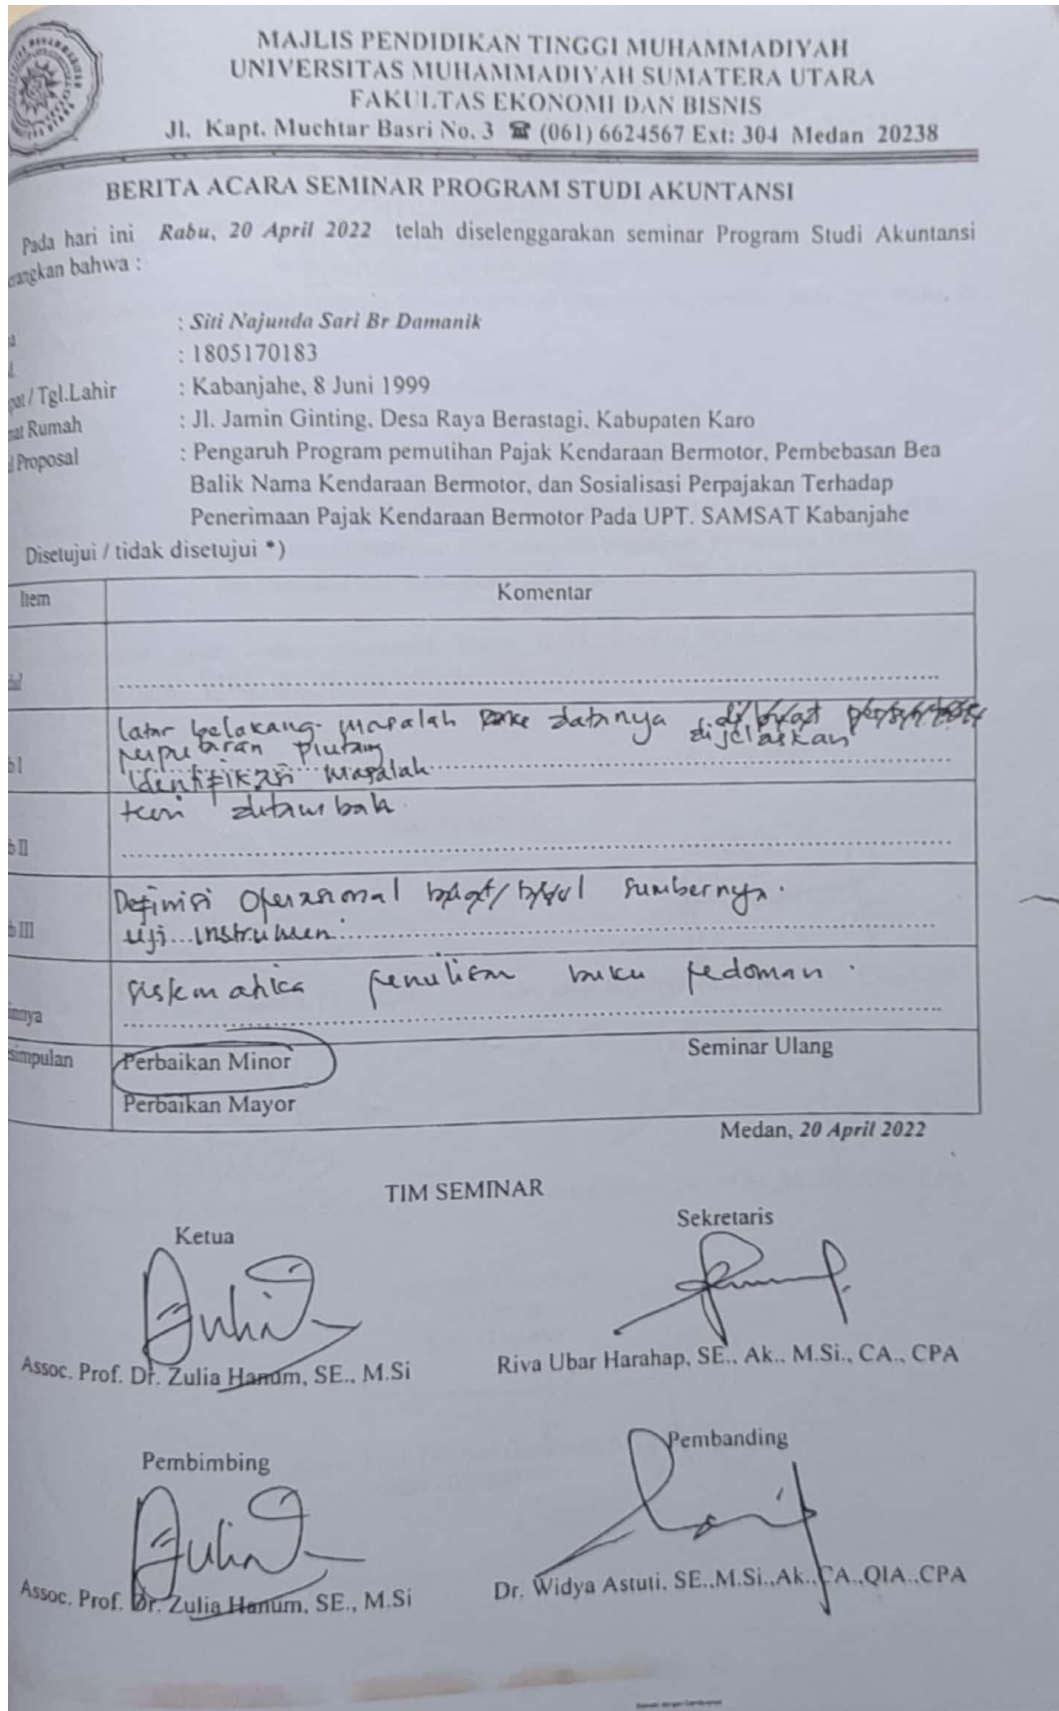 MAJLIS PENDIDIKAN TINGGI MUHAMMADIYAH
UNIVERSITAS MUHAMMADIYAH SUMATERA UTARA
FAKULTAS EKONOMI DAN BISNIS
Jl. Kapt. Muchtar Basri No. 3 ☎ (061) 6624567 Ext: 304 Medan 20238
BERITA ACARA SEMINAR PROGRAM STUDI AKUNTANSI
Pada hari ini Rabu, 20 April 2022 telah diselenggarakan seminar Program Studi Akuntansi
bahwa :
: Siti Najunda Sari Br Damanik
: 1805170183
/ Tgl.Lahir : Kabanjahe, 8 Juni 1999
Rumah : Jl. Jamin Ginting, Desa Raya Berastagi, Kabupaten Karo
Proposal : Pengaruh Program pemutihan Pajak Kendaraan Bermotor, Pembebasan Bea
Balik Nama Kendaraan Bermotor, dan Sosialisasi Perpajakan Terhadap
Penerimaan Pajak Kendaraan Bermotor Pada UPT. SAMSAT Kabanjahe
Disetujui / tidak disetujui *)
Item Komentar
latar belakang masalah datanya dijelaskan
perputaran piutang
I identifikasi masalah
teori ditambah
II
Definisi Operasional sumbernya.
III uji instrumen
sistematika penulisan buku pedoman.
simpulan Perbaikan Minor Seminar Ulang
Perbaikan Mayor
Medan, 20 April 2022
TIM SEMINAR
Ketua Sekretaris
Assoc. Prof. Dr. Zulia Hanum, SE., M.Si Riva Ubar Harahap, SE., Ak., M.Si., CA., CPA
Pembimbing Pembanding
Assoc. Prof. Dr. Zulia Hanum, SE., M.Si Dr. Widya Astuti, SE.,M.Si.,Ak.,CA.,QIA.,CPA